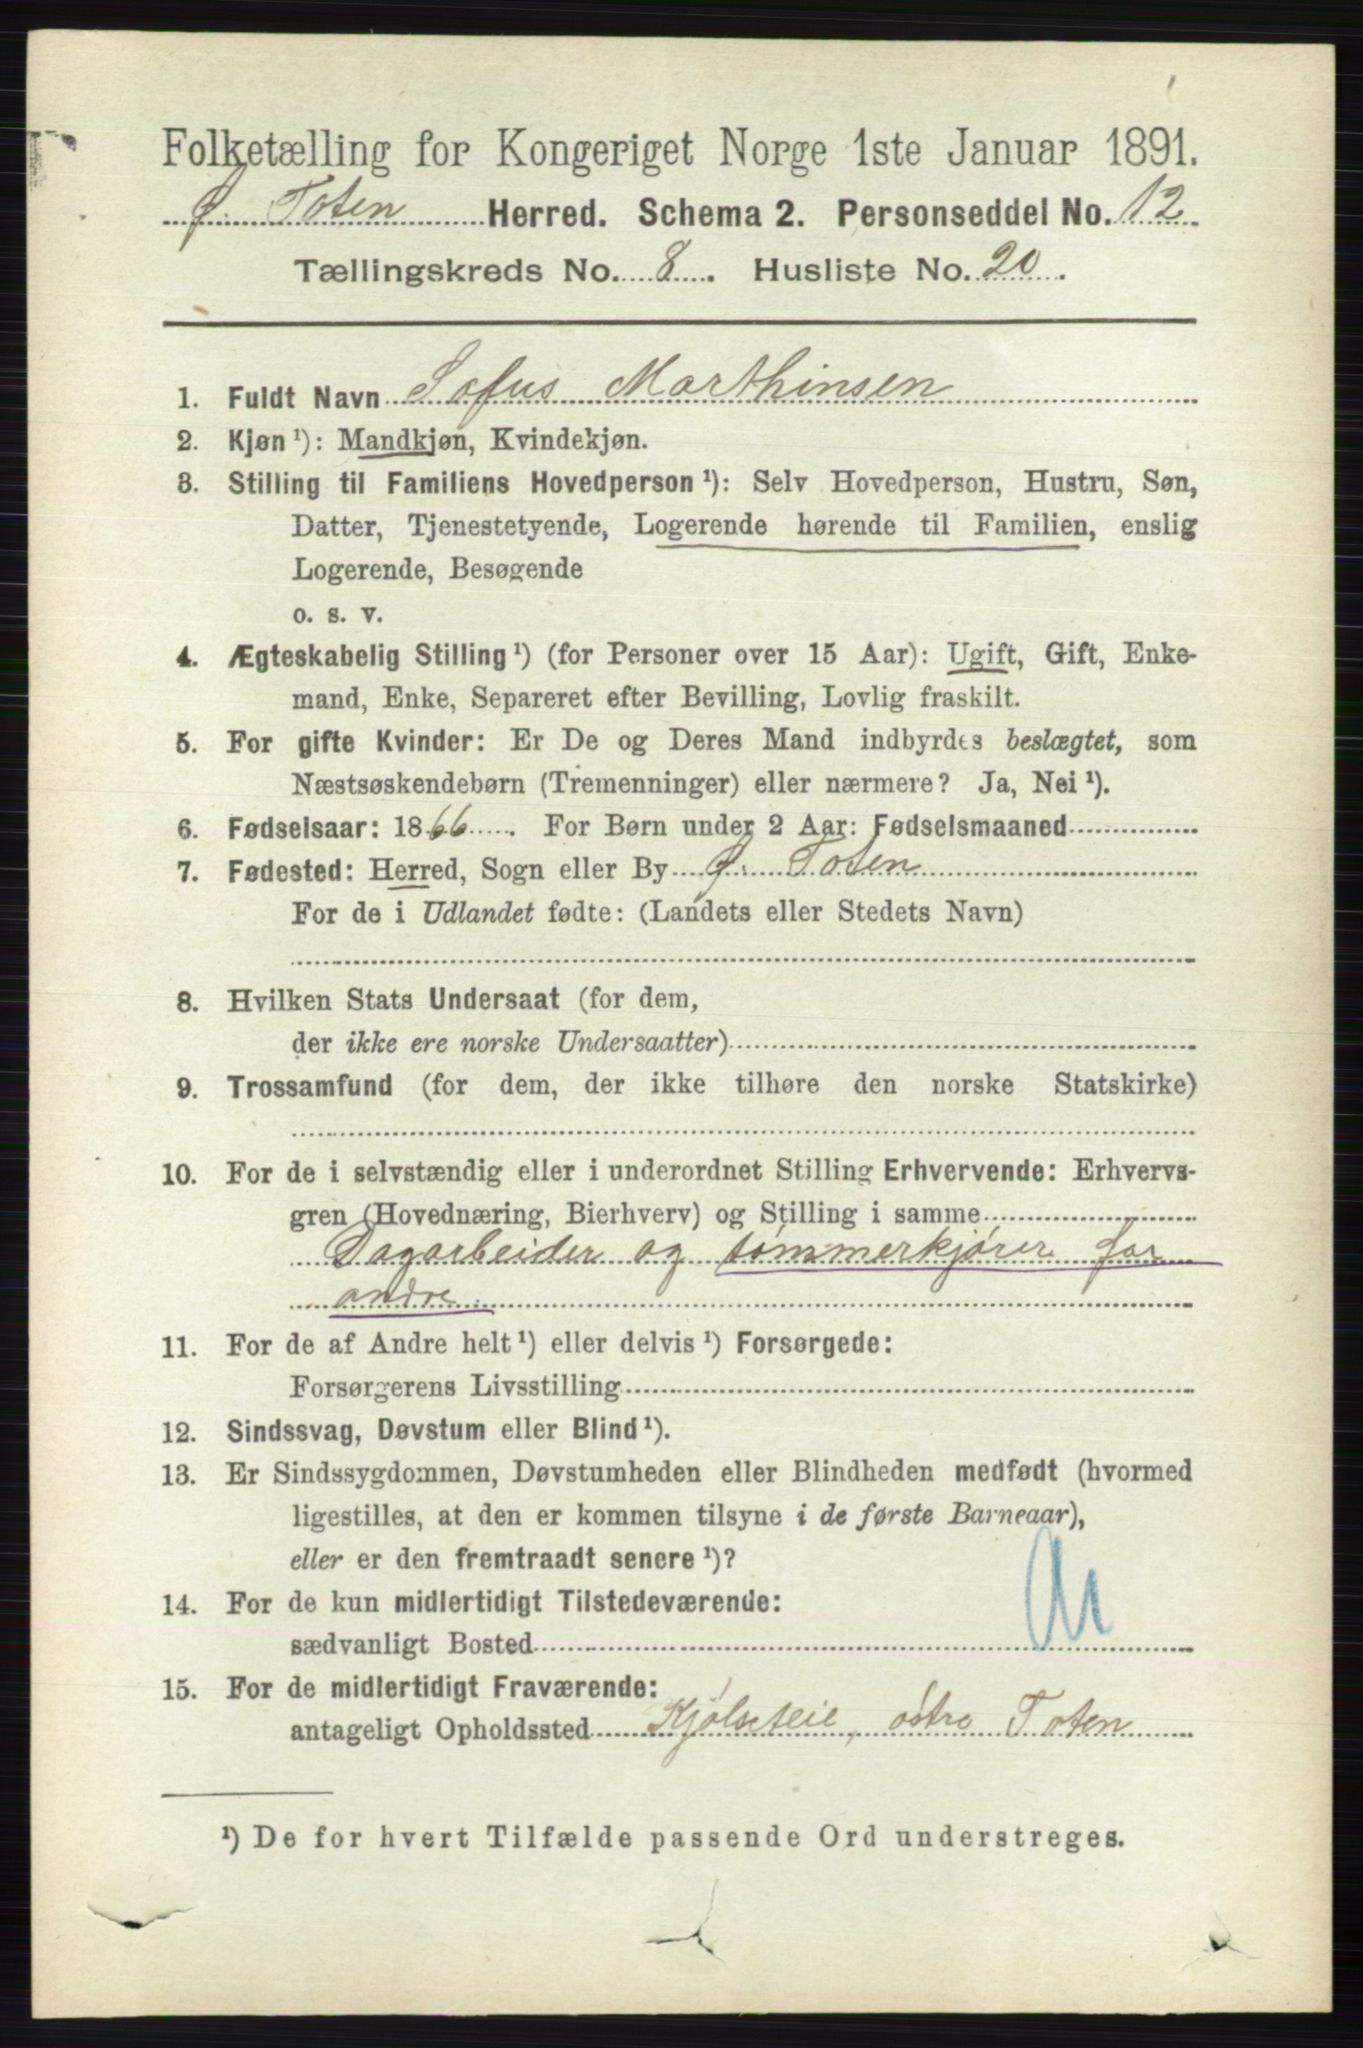 Folketælling for Kongeriget Norge 1ste Januar 1891.
Ø. Toten Herred. Schema 2. Personseddel No. 12
Tællingskreds No. 8. Husliste No. 20.
1. Fuldt Navn Sofus Marthinsen
2. Kjøn ¹): Mandkjøn, Kvindekjøn.
3. Stilling til Familiens Hovedperson ¹): Selv Hovedperson, Hustru, Søn,
Datter, Tjenestetyende, Logerende hørende til Familien, enslig
Logerende, Besøgende
o. s. v.
4. Ægteskabelig Stilling ¹) (for Personer over 15 Aar): Ugift, Gift, Enke-
mand, Enke, Separeret efter Bevilling, Lovlig fraskilt.
5. For gifte Kvinder: Er De og Deres Mand indbyrdes beslægtet, som
Næstsøskendebørn (Tremenninger) eller nærmere? Ja, Nei ¹).
6. Fødselsaar: 1866. For Børn under 2 Aar: Fødselsmaaned
7. Fødested: Herred, Sogn eller By Ø. Toten
For de i Udlandet fødte: (Landets eller Stedets Navn)
8. Hvilken Stats Undersaat (for dem,
der ikke ere norske Undersaatter)
9. Trossamfund (for dem, der ikke tilhøre den norske Statskirke)
10. For de i selvstændig eller i underordnet Stilling Erhvervende: Erhvervs-
gren (Hovednæring, Bierhverv) og Stilling i samme
Dagarbeider og tømmerkjører for
andre
11. For de af Andre helt ¹) eller delvis ¹) Forsørgede:
Forsørgerens Livsstilling
12. Sindssvag, Døvstum eller Blind ¹).
13. Er Sindssygdommen, Døvstumheden eller Blindheden medfødt (hvormed
ligestilles, at den er kommen tilsyne i de første Barneaar),
eller er den fremtraadt senere ¹)?
14. For de kun midlertidigt Tilstedeværende:
sædvanligt Bosted
15. For de midlertidigt Fraværende:
antageligt Opholdssted Kjølseteie, østre Toten
¹) De for hvert Tilfælde passende Ord understreges.